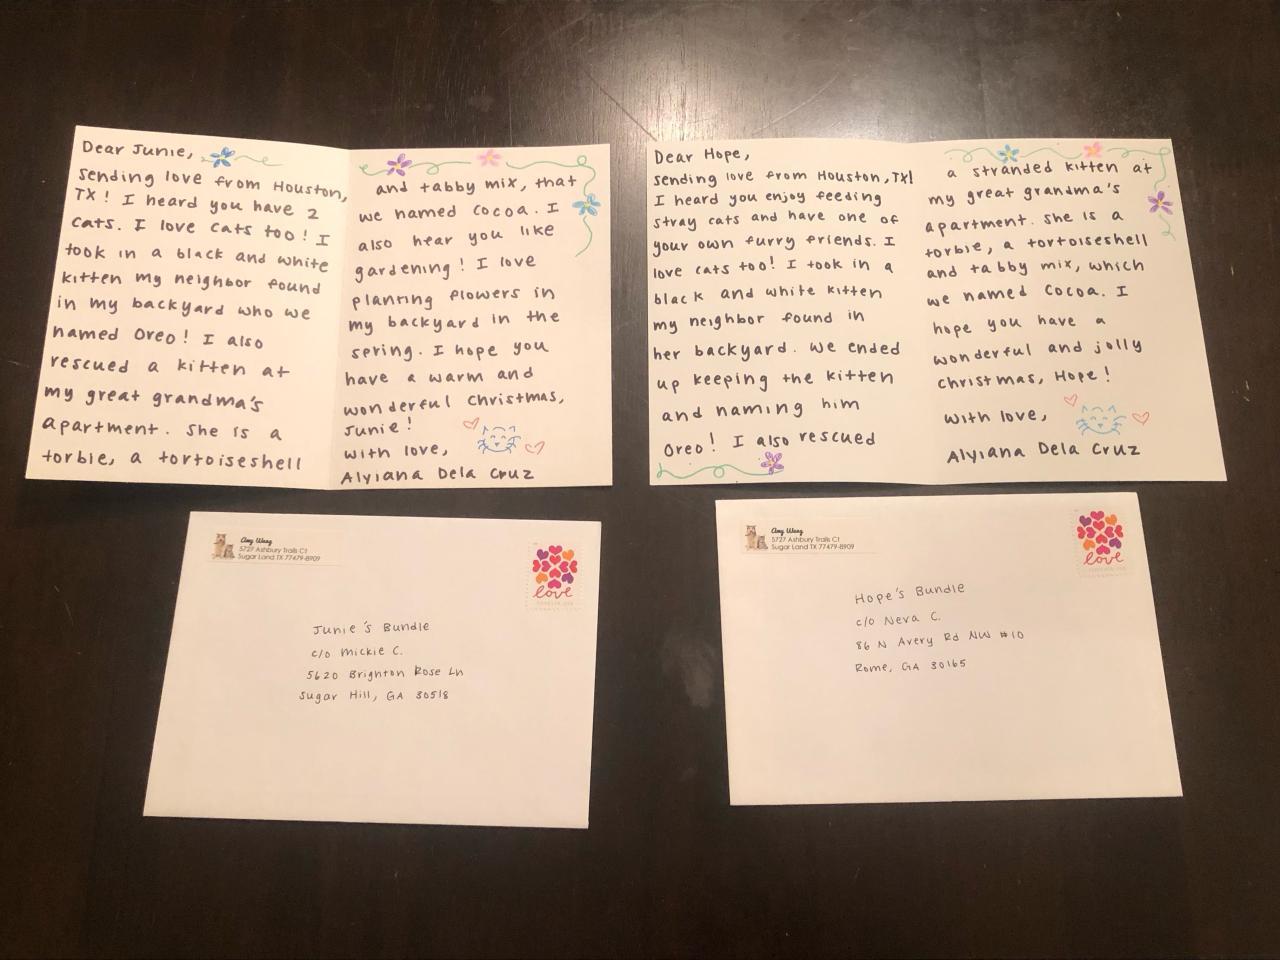 Dear Junie,
sending love from Houston,
TX! I heard you have 2
cats. I love cats too! I
took in a black and white
kitten my neighbor found
in my backyard who we
named Oreo! I also
rescued a kitten at
my great grandma's
apartment. She is a
torbie, a tortoiseshell
and tabby mix, that
we named Cocoa. I
also hear you like
gardening! I love
planting flowers in
my backyard in the
spring. I hope you
have a warm and
wonderful Christmas,
Junie!
with love,
Alyiana Dela Cruz
Dear Hope,
sending love from Houston, TX!
I heard you enjoy feeding
stray cats and have one of
your own furry friends. I
love cats too! I took in a
black and white kitten
my neighbor found in
her backyard. We ended
up keeping the kitten
and naming him
Oreo! I also rescued
a stranded kitten at
my great grandma's
apartment. She is a
torbie, a tortoiseshell
and tabby mix, which
we named Cocoa. I
hope you have a
wonderful and jolly
Christmas, Hope!
with love,
Alyiana Dela Cruz
Amy Wang
5727 Ashbury Trails Ct
Sugar Land TX 77479-8909
love
Junie's Bundle
c/o Mickie C.
5620 Brighton Rose Ln
Sugar Hill, GA 30518
Amy Wang
5727 Ashbury Trails Ct
Sugar Land TX 77479-8909
love
Hope's Bundle
c/o Neva C.
86 N Avery Rd NW #10
Rome, GA 30165